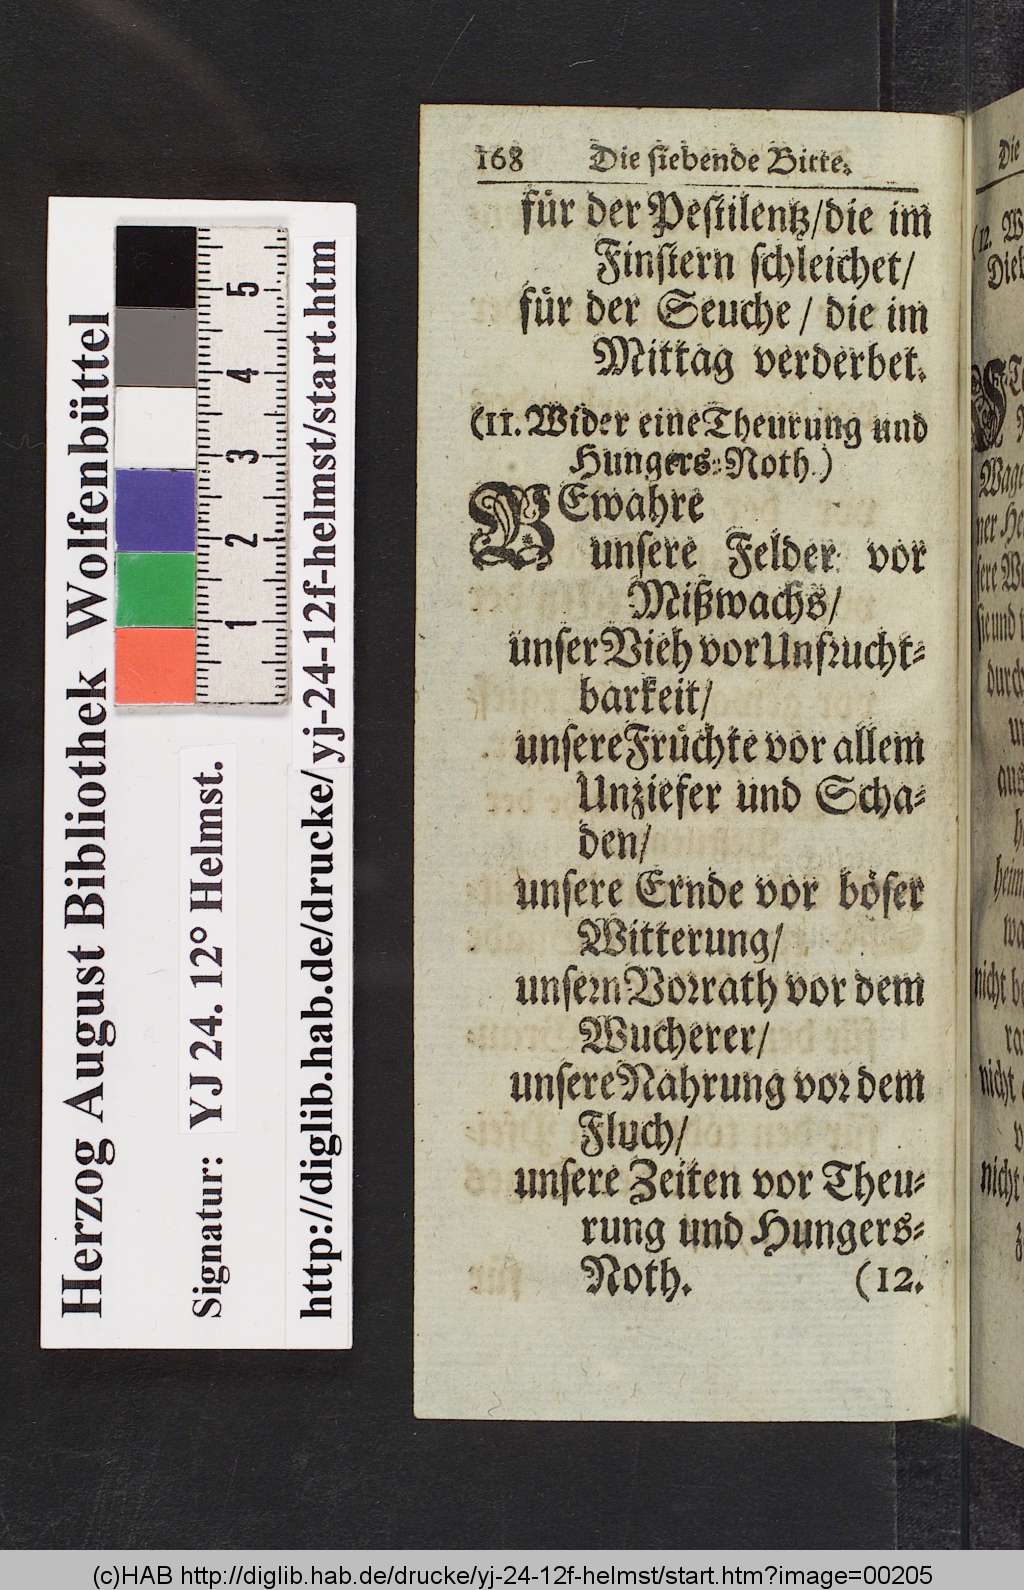 168 Die siebende Bitte.
für der Pestilentz/die im
Finstern schleichet/
für der Seuche / die im
Mittag verderbet.
(11. Wider eine Theurung und
Hungers-Noth.)
BEwahre
unsere Felder vor
Mißwachs/
unser Vieh vor Unfrucht-
barkeit/
unsere Früchte vor allem
Unziefer und Scha-
den/
unsere Ernde vor böser
Witterung/
unsern Vorrath vor dem
Wucherer/
unsere Nahrung vor dem
Fluch/
unsere Zeiten vor Theu-
rung und Hungers-
Noth. (12.
Herzog August Bibliothek Wolfenbüttel
Signatur: YJ 24. 12° Helmst.
http://diglib.hab.de/drucke/yj-24-12f-helmst/start.htm
1 2 3 4 5
Die
(12.
nicht
nicht
nicht
(c)HAB http://diglib.hab.de/drucke/yj-24-12f-helmst/start.htm?image=00205